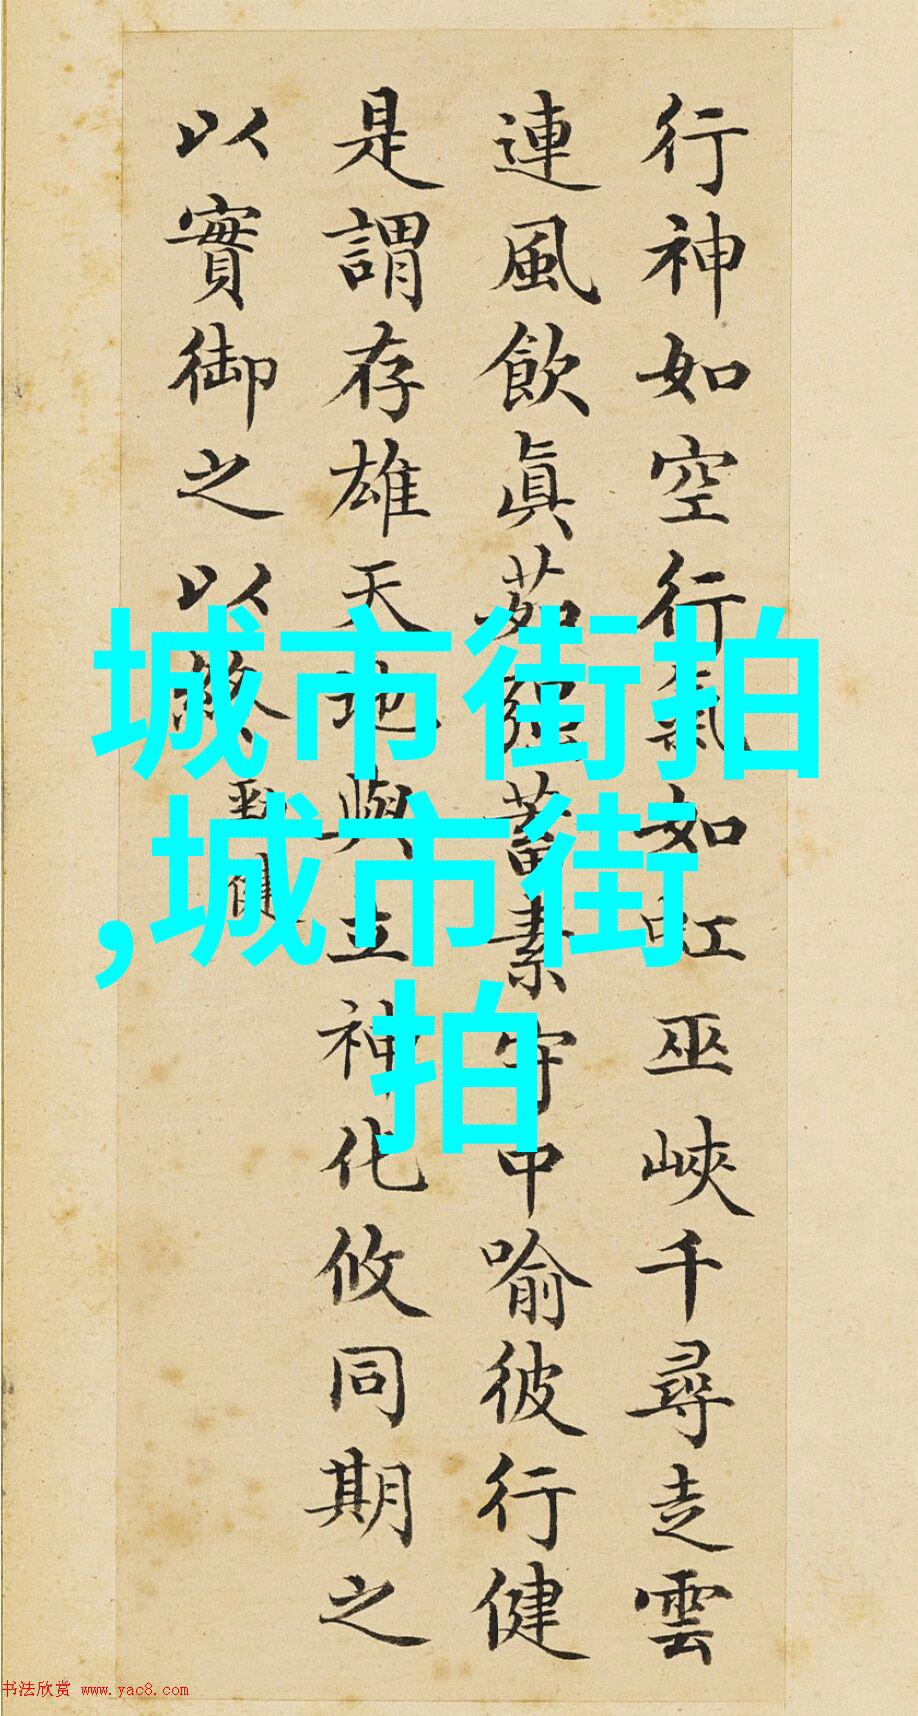 行神如空行氣如虹巫峽千尋走雲
連風飲眞茹強蓄素守中喻彼行健
是謂存雄天地與立神化攸同期之
以實御之以終
勁健
城市街拍
,城市街
拍
书法欣赏 www.yac8.com